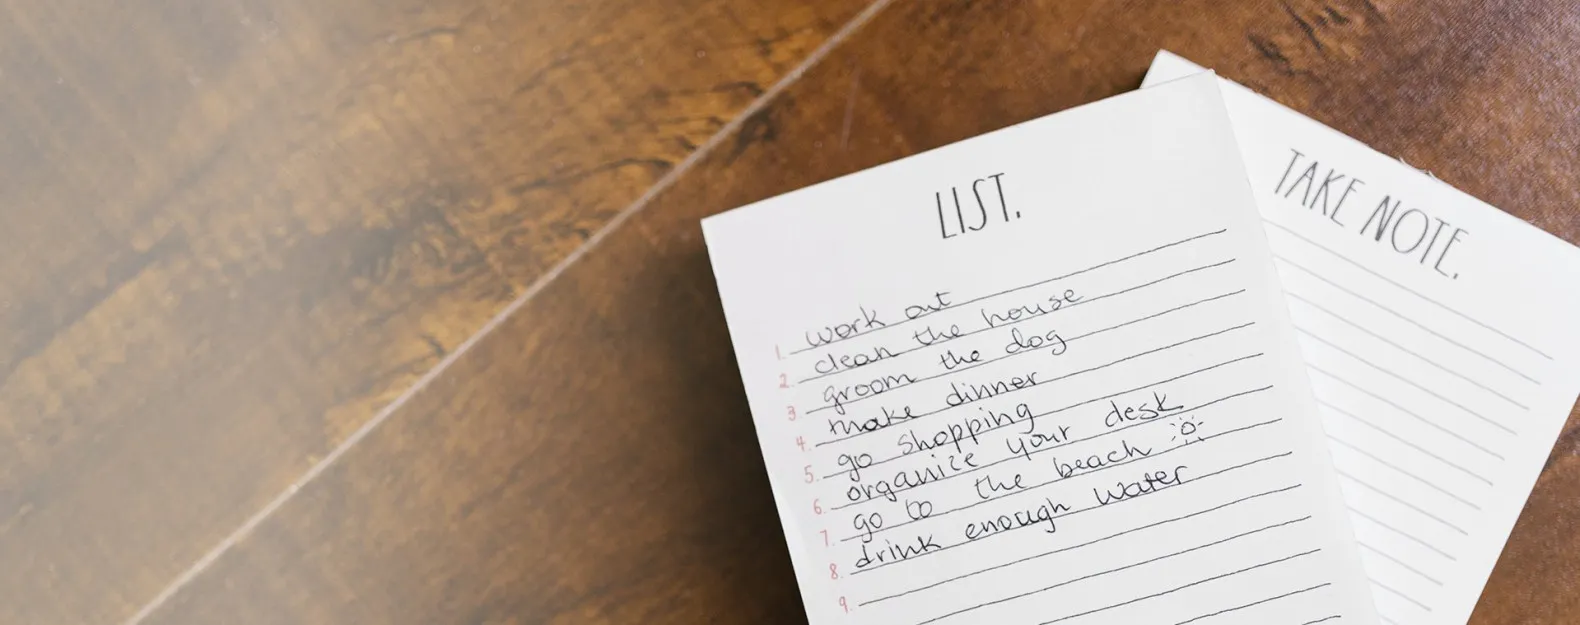 LIST.
1. work out
2. clean the house
3. groom the dog
4. make dinner
5. go shopping
6. organize your desk
7. go to the beach
8. drink enough water
9.
TAKE NOTE.